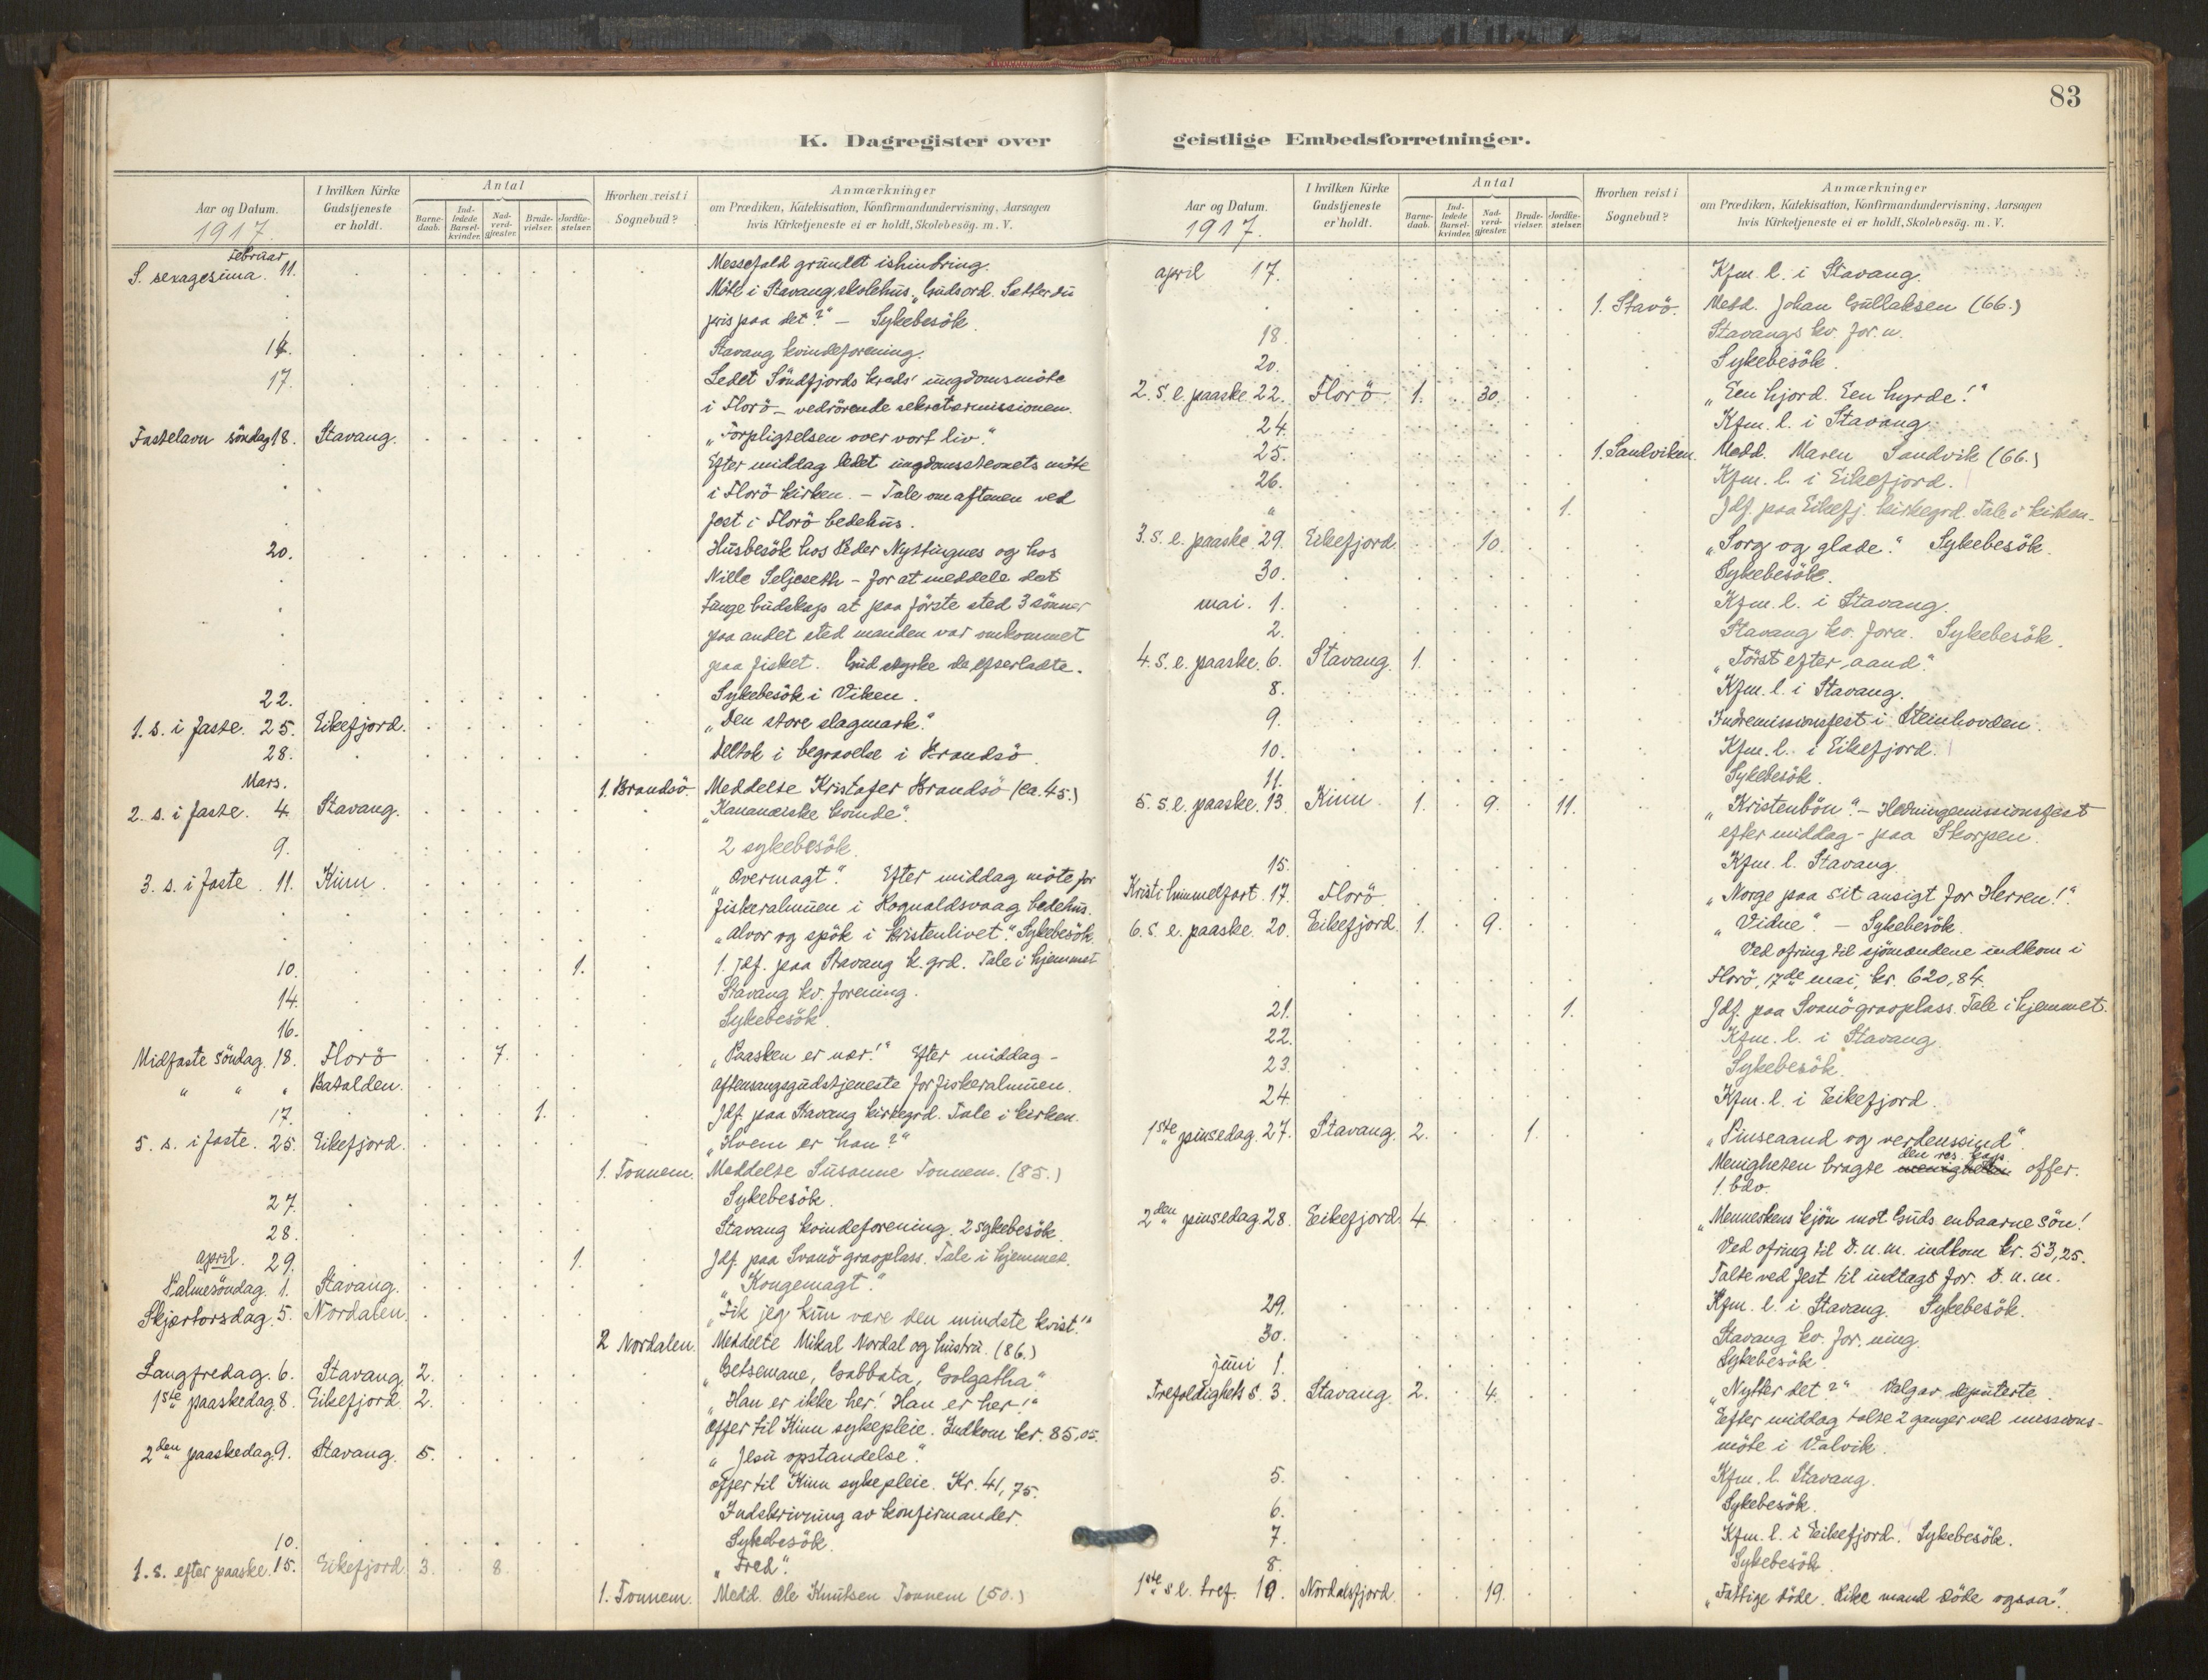 83
K. Dagregister over
Aar og Datum.
1917.
I hvilken Kirke Gudstjeneste er holdt.
Antal
Barne-daab.
Ind-ledede Barsel-kvinder.
Nad-verd-gjæster.
Brude-vielser.
Jordfæ-stelser.
Hvorhen reist i Sognebud?
Anmærkninger
om Prædiken, Katekisation, Konfirmandundervisning, Aarsagen
hvis Kirketjeneste ei er holdt, Skolebesög. m. V.
Februar
S. sexagesima. 11. Messefald grundet ishindring.
Möte i Stavang skolehus. „Guds ord. Sætter du
pris paa det?“ — Sykebesök.
14. Stavang kvindeforening.
17. Ledet Söndfjords kreds' ungdomsmöte
i Florö – vedrörende sekretærmissionen.
Fastelavn söndag 18. Stavang. „Forpligtelsen over vort liv.“
Efter middag ledet ungdomsstevnets möte
i Florö kirken. – Tale om aftenen ved
fest i Florö bedehus.
20. Husbesök hos Peder Nyttingnes og hos
Nille Seljeseth – for at meddele det
tunge budskap at paa förste sted 3 sönner
paa andet sted manden var omkommet
paa fisket. Gud styrke de efterladte.
22. Sykebesök i Viken.
1. s. i faste. 25. Eikefjord. „Den store slagmark.“
28. Deltok i begravelse i Brandsö.
Mars.
1. Brandsö. Meddelte Kristofer Brandsö (ca. 45.)
2. s. i faste. 4. Stavang. „Kananæiske kvinde“.
9. 2 sykebesök.
3. s. i faste. 11. Kinn. „Overmagt“. Efter middag möte for
fiskeralmuen i Rognaldsvaag bedehus.
„Alvor og spök i kristenlivet“. Sykebesök.
10. 1. 1. Jdf. paa Stavang k.grd. Tale i hjemmet
14. Stavang kv. forening.
16. Sykebesök.
Midfaste söndag. 18. Florö 7. „Paasken er nær!“ Efter middag –
„ „ „ Batalden. aftensangsgudstjeneste for fiskeralmuen.
17. 1. Jdf. paa Stavang kirkegrd. Tale i kirken.
5. s. i faste. 25. Eikefjord. „Hvem er han?“
1. Tonnem. Meddelte Susanne Tonnem. (85.)
27. Sykebesök.
28. Stavang kvindeforening. 2 sykebesök.
29. 1. Jdf. paa Svanö gravplass. Tale i hjemmet.
april.
Palmesöndag. 1. Stavang. „Kongemagt“.
Skjærtorsdag. 5. Nordalen. „Fik jeg kun være den mindste kvist!“
2 Nordalen. Meddelte Mikal Nordal og hustru. (86.)
Langfredag. 6. Stavang. 2. „Getsemane, Gabbata, Golgatha“.
1ste paaskedag. 8. Eikefjord. 2. „Han er ikke her! Han er her!“
Offer til Kinn sykepleie. Indkom kr. 85,05.
2den paaskedag. 9. Stavang. 5. „Jesu opstandelse“.
offer til Kinn sykepleie. Kr. 41,75.
Indskrivning av konfirmander.
10. Sykebesök.
1. s. efter paaske. 15. Eikefjord 3. 8. „Fred“.
1. Tonnem. Medd. Ole Knutsen Tonnem (50.)
geistlige Embedsforretninger.
Aar og Datum.
1917.
I hvilken Kirke Gudstjeneste er holdt.
Antal
Barne-daab.
Ind-ledede Barsel-kvinder.
Nad-verd-gjæster.
Brude-vielser.
Jordfæ-stelser.
Hvorhen reist i Sognebud?
Anmærkninger
om Prædiken, Katekisation, Konfirmandundervisning, Aarsagen
hvis Kirketjeneste ei er holdt, Skolebesög. m. V.
april 17. Kfm. l. i Stavang.
1. Stavö. Medd. Johan Gullaksen (66.)
18. Stavangs kv. for.n.
20. Sykebesök.
2. s. e. paaske. 22. Florö 1. 30. „Een hjord. Een hyrde!“
24. Kfm. l. i Stavang.
25. 1. Sandviken. Medd. Maren Sandvik (66.)
26. Kfm. l. i Eikefjord.
„ 1. Jdf. paa Eikefj. kirkegrd. Tale i kirken.
3. s. e. paaske. 29. Eikefjord 10. „Sorg og glæde.“ Sykebesök.
30. Sykebesök.
mai. 1. Kfm. l. i Stavang.
2. Stavang kv. forn. Sykebesök.
4. s. e. paaske. 6. Stavang. 1. „Törst efter aand“.
8. Kfm. l. i Stavang.
9. Indremissionsfest i Steinhovden.
10. Kfm. l. i Eikefjord.
11. Sykebesök.
5. s. e. paaske. 13. Kinn. 1. 9. 11. „Kristenbön“. – Hedningemissionsfest
efter middag – paa Skorpen.
15. Kfm. l. Stavang.
Kristi himmelfart. 17. Florö. „Norge paa sit ansigt for Herren!“
6. s. e. paaske. 20. Eikefjord. 1. 9. „Vidne“. – Sykebesök.
Ved ofring til sjömændene indkom i
Florö, 17de mai, kr. 620,84.
21. 1. Jdf. paa Svanö gravplass. Tale i hjemmet.
22. Kfm. l. i Stavang.
23. Sykebesök.
24. Kfm. l. i Eikefjord.
1ste pinsedag. 27. Stavang. 2. 1. „Pinseaand og verdenssind“.
Menigheten bragte den res. kap. offer.
1. bdv.
2den pinsedag 28. Eikefjord. 4. „Menneskens kjön mot Guds enbaarne sön!
Ved ofring til D. u. m. indkom kr. 53,25.
Talte ved fest til indtagt for D. u. m.
29. Kfm. l. i Stavang. Sykebesök.
30. Stavang kv. for.ning.
juni 1. Sykebesök.
Trefoldighets s. 3. Stavang. 2. 4. „Nytter det?“ Valgav deputerte.
Efter middag talte 2 ganger ved missions-
möte i Valvik.
5. Kfm. l. Stavang.
6. Sykebesök.
7. Kfm. l. i Eikefjord. Sykebesök.
8. Sykebesök.
1ste s. e. tref. 10. Nordalsfjord. 19. „Fattige döde. Rike mand döde ogsaa“.